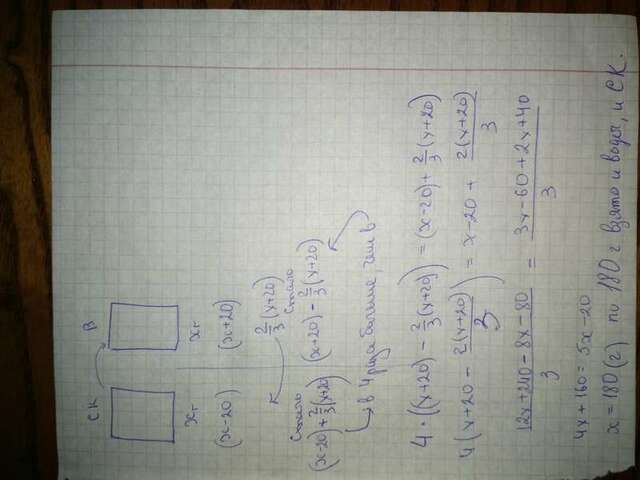 СК В
xг xг
(x-20) (x+20)
2/3 (x+20)
Стало Стало
(x-20)+2/3(x+20) (x+20) - 2/3(x+20)
в 4 раза больше, чем в
4·((x+20) - 2/3(x+20)) = (x-20) + 2/3(x+20)
4(x+20 - 2(x+20)/3) = x-20 + 2(x+20)/3
12x+240-8x-80/3 = 3x-60+2x+40/3
4x+160=5x-20
x=180(г) по 180 г взято и воды, и СК.